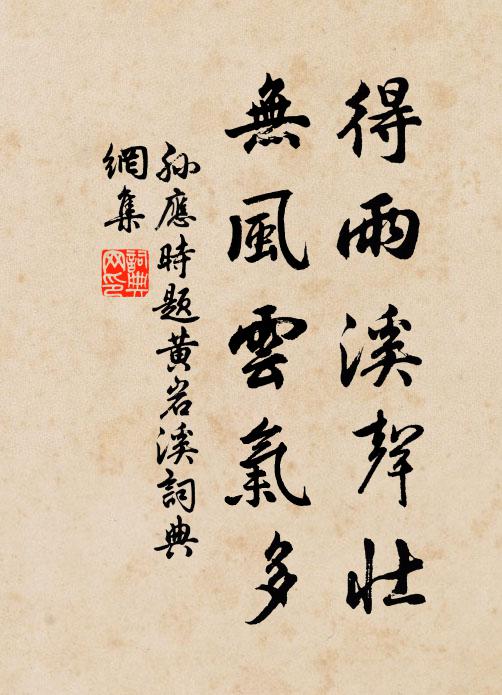 得雨溪聲壯
無風雲氣多
孫應時題黄岩溪詞典
網集
詞典
网印